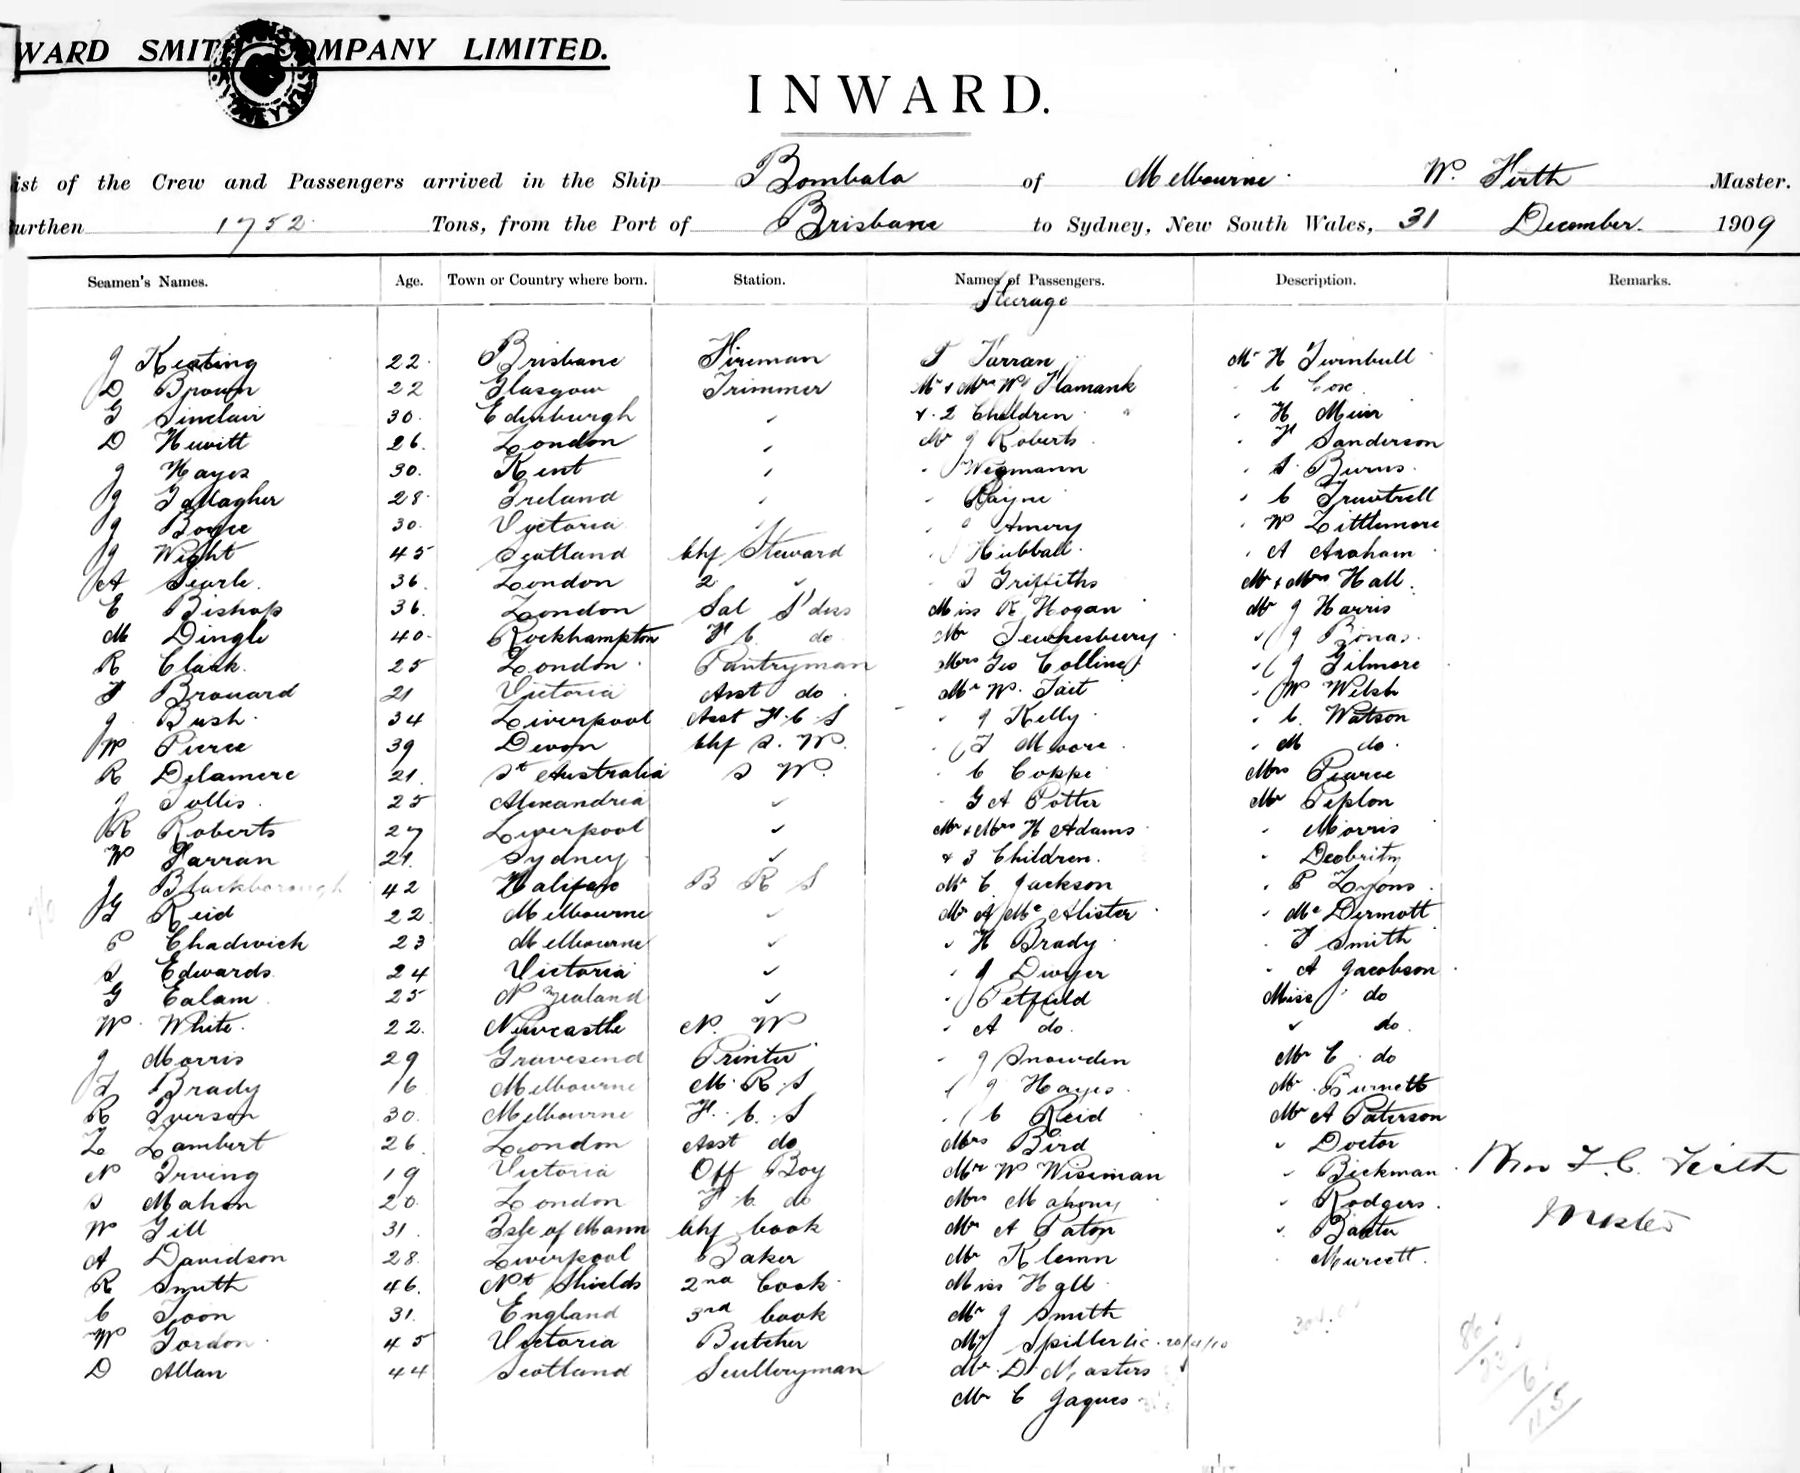 WARD SMITH COMPANY LIMITED.
INWARD.
ist of the Crew and Passengers arrived in the Ship Bombala of Melbourne. W. Firth Master.
urthen 1752 Tons, from the Port of Brisbane to Sydney, New South Wales, 31 December 1909
Seamen's Names. Age. Town or Country where born. Station. Names of Passengers. Description. Remarks.
Steerage
J Keating 22 Brisbane Fireman T Farran Mr H Turnbull
D Brown 22 Glasgow Trimmer Mr & Mrs Wm Flamank " C Cox
G Sinclair 30 Edinburgh " & 2 Children " H Muir
D Hewitt 26 London " Mr J Roberts " F Sanderson
J Hayes 30 Kent " " Wegmann " S Burns
J Gallagher 28 Ireland " " Payne " C Trewtrell
J Boyce 30 Victoria " " J Amery " W Littlemore
J Wight 45 Scotland Chf Steward " Hubball " A Araham
A Searle 36 London 2 " " T Griffiths Mr & Mrs Hall
E Bishop 36 London Sal S'dess Miss R Hogan Mr J Harris
M Dingle 40 Rockhampton F C do Mr Tewkesbury " J Bonas
R Clark 25 London Pantryman Mrs Geo Colling " J Gilmore
F Brouard 21 Victoria Asst do Mr W. Tait " W Welsh
J Bush 34 Liverpool Asst F. C. S " J Kelly " C. Watson
W Pierce 39 Devon Chf S. W. " T Moore " M do.
R Delamere 21 Sth Australia S W. " C Coppe Mrs Pearce
J Tollis 25 Alexandria " " G A Potter Mr Peplon
R Roberts 27 Liverpool " Mr & Mrs H Adams " Morris
W Farran 21 Sydney " & 3 Children.
J Blackborough 42 Halifax B R S Mr C Jackson " P Lyons
G Reid 22 Melbourne " Mr A Mc Alister " Mc Dermott
P Chadwick 23 Melbourne " " H Brady " F Smith
S Edwards 24 Victoria " " J Dwyer " A Jacobson
G Ealam 25 N Zealand " " Petfield Miss J do
W White 22 Newcastle N. W " A do. " do
J Morris 29 Gravesend Printer " J Snowden Mr C do
T Brady 16 Melbourne M. R. S " J Hayes Mr Burnett
R Iverson 30 Melbourne F. C. S " C Reid Mr A Paterson
L Lambert 26 London Asst do Mrs Bird " Doctor
N Irving 19 Victoria Off Boy Mr W Wiseman " Bickman
S Mahon 20 London F C do Mrs Mahony " Rodgers
W Gill 31 Isle of Mann Chf Cook Mr A Paton " Baxter
A Davidson 28 Liverpool Baker Mr Klemn " Murcott
R Smith 46 Nth Shields 2nd Cook Miss Hall
C Toon 31 England 3rd Cook Mr J Smith
W Gordon 45 Victoria Butcher Mr Spiller
D Allan 44 Scotland Sculleryman Mr D Masters
Mr C Jaques
Master